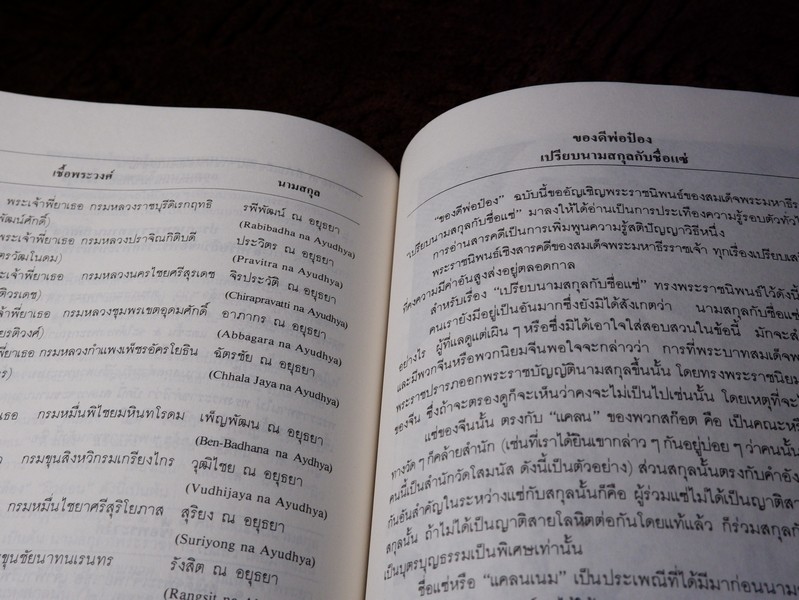 เชื้อพระวงศ์ นามสกุล
พระเจ้าพี่ยาเธอ กรมหลวงราชบุรีดิเรกฤทธิ รพีพัฒน์ ณ อยุธยา
พัฒน์ศักดิ์) (Rabibadha na Ayudhya)
พระเจ้าพี่ยาเธอ กรมหลวงปราจิณกิติบดี ประวิตร ณ อยุธยา
ครวัฒโนดม) (Pravitra na Ayudhya)
ะเจ้าพี่ยาเธอ กรมหลวงนครไชยศรีสุรเดช จิรประวัติ ณ อยุธยา
ติวรเดช) (Chirapravatti na Ayudhya)
จ้าพี่ยาเธอ กรมหลวงชุมพรเขตอุดมศักดิ์ อาภากร ณ อยุธยา
ยรติวงศ์) (Abbagara na Ayudhya)
พี่ยาเธอ กรมหลวงกำแพงเพ็ชรอัครโยธิน ฉัตรชัย ณ อยุธยา
(Chhala Jaya na Ayudhya)
เธอ กรมหมื่นพิไชยมหินทโรดม เพ็ญพัฒน ณ อยุธยา
(Ben-Badhana na Aydhya)
กรมขุนสิงหวิกรมเกรียงไกร วุฒิไชย ณ อยุธยา
(Vudhijaya na Ayudhya)
กรมหมื่นไชยาศรีสุริโยภาส สุริยง ณ อยุธยา
(Suriyong na Ayudhya)
ขุนชัยนาทนเรนทร รังสิต ณ อยุธยา
(Rangsit na
ของดีพ่อป๋อง
เปรียบนามสกุลกับชื่อแซ่
"ของดีพ่อป๋อง" ฉบับนี้ขออัญเชิญพระราชนิพนธ์ของสมเด็จพระมหาธีร
"เปรียบนามสกุลกับชื่อแซ่" มาลงให้ได้อ่านเป็นการประเทืองความรู้รอบตัวทั่ว
การอ่านสารคดีเป็นการเพิ่มพูนความรู้สติปัญญาวิธีหนึ่ง
พระราชนิพนธ์เชิงสารคดีของสมเด็จพระมหาธีรราชเจ้า ทุกเรื่องเปรียบเส
ที่คงความมีค่าอันสูงส่งอยู่ตลอดกาล
สำหรับเรื่อง "เปรียบนามสกุลกับชื่อแซ่" ทรงพระราชนิพนธ์ไว้ดังนี้
คนเรายังมีอยู่เป็นอันมากซึ่งยังมิได้สังเกตว่า นามสกุลกับชื่อแซ่
อย่างไร ผู้ที่แลดูแต่เผิน ๆ หรือซึ่งมิได้เอาใจใส่สอบสวนในข้อนี้ มักจะส
และมีพวกจีนหรือพวกนิยมจีนพอใจจะกล่าวว่า การที่พระบาทสมเด็จพร
พระราชปรารภออกพระราชบัญญัตินามสกุลขึ้นนั้น โดยทรงพระราชนิยม
ของจีน ซึ่งถ้าจะตรองดูก็จะเห็นว่าคงจะไม่เป็นไปเช่นนั้น โดยเหตุที่จะไ
แซ่ของจีนนั้น ตรงกับ "แคลน" ของพวกสก๊อต คือ เป็นคณะหรื
ทางวัด ๆ ก็คล้ายสำนัก (เช่นที่เราได้ยินเขากล่าว ๆ กันอยู่บ่อย ๆ ว่าคนนั้น
คนนี้เป็นสำนักวัดโสมนัส ดังนี้เป็นตัวอย่าง) ส่วนสกุลนั้นตรงกับคำอัง
กันอันสำคัญในระหว่างแซ่กับสกุลนั้นก็คือ ผู้ร่วมแซ่ไม่ได้เป็นญาติสา
สกุลนั้น ถ้าไม่ได้เป็นญาติสายโลหิตต่อกันโดยแท้แล้ว ก็ร่วมสกุลกั
เป็นบุตรบุญธรรมเป็นพิเศษเท่านั้น
ชื่อแซ่หรือ "แคลนเนม" เป็นประเพณีที่ได้มีมาก่อนนาม